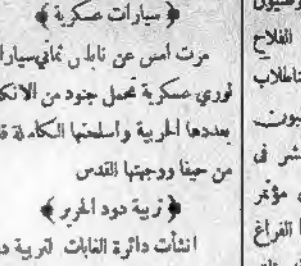 ﴿ سيارات عسكرية ﴾
مرت امس عن نابلس ثماني سيارا
لوري عسكرية تحمل جنود من الانك
بعددها الحربية واسلحتها الكاملة قا
من حيفا ووجهتها القدس
﴿ تربية دود الحرير ﴾
انشأت دائرة الغابات لتربية د
الفلاح
شر في
مؤتمر
الفراغ